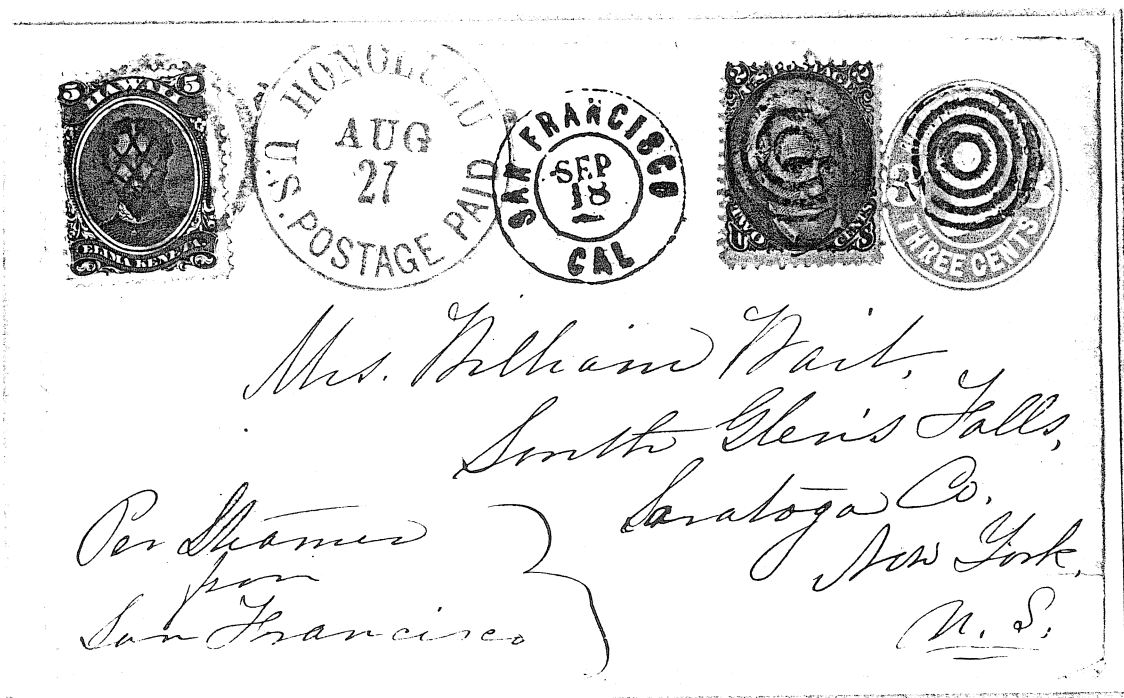 5 HAWAII 5
HONOLULU
AUG
27
U.S. POSTAGE PAID
SAN FRANCISCO
SEP
18
CAL
2 U.S. POSTAGE 2
THREE CENTS
Mrs. William Wait,
South Glen's Falls,
Saratoga Co.
New York,
U. S.
Per Steamer
from
San Francisco